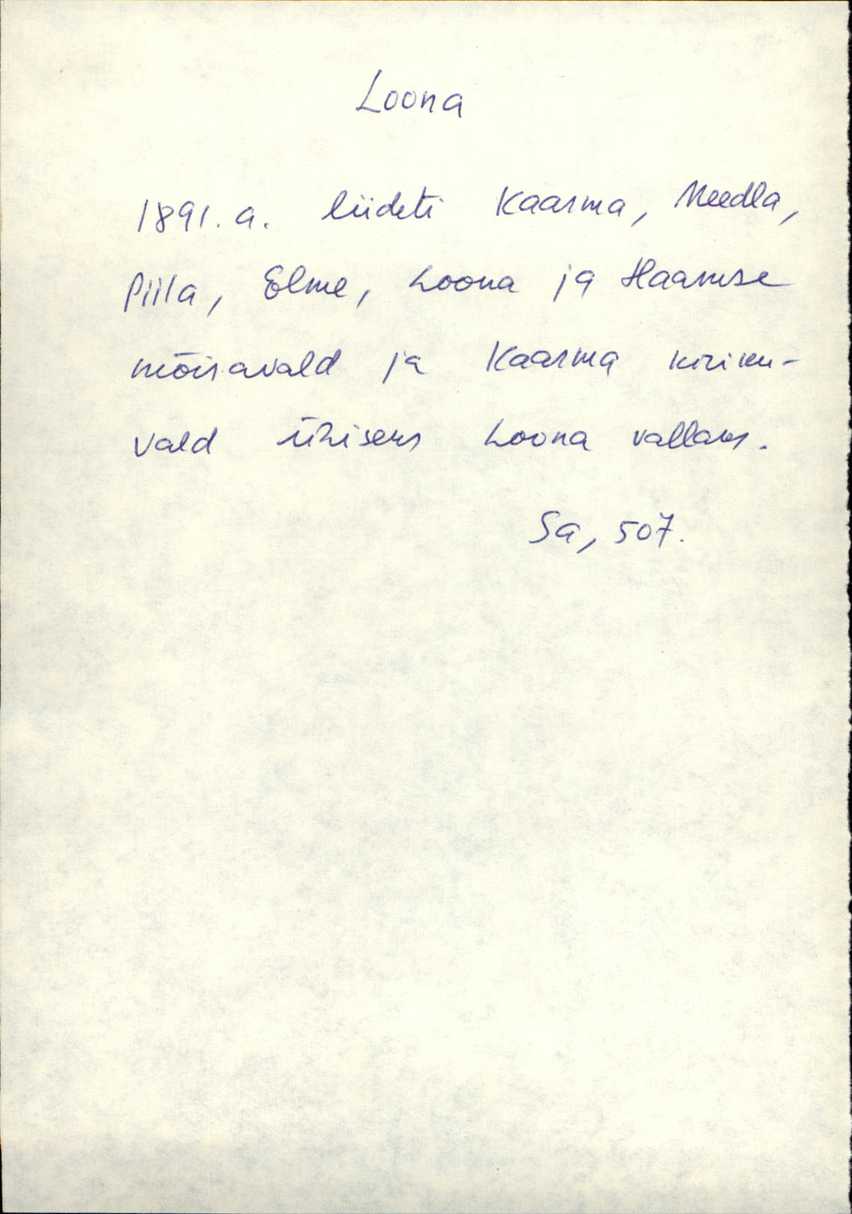 Loona
1891. a. liideti Kaarma, Meedla,
Piila, Elme, Loona ja Haamse
mõisavald ja Kaarma kiriku-
vald ühiseks Loona vallaks.
Sa, 507.